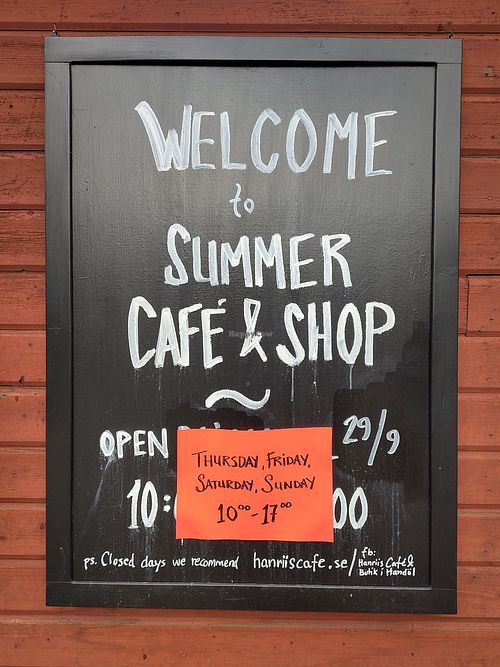 WELCOME
to
SUMMER
CAFÉ & SHOP
~
OPEN 29/9
THURSDAY, FRIDAY,
SATURDAY, SUNDAY
10:00
10⁰⁰-17⁰⁰
ps. Closed days we recommend hanriiscafe.se/ fb:
Hanriis Café &
Butik i Handöl